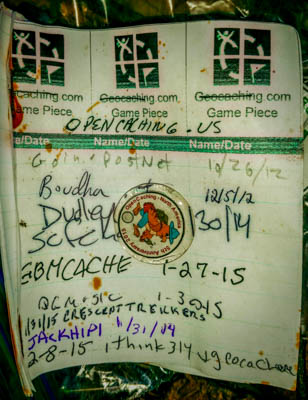 Geocaching.com Geocaching.com Geocaching.com
Game Piece Game Piece Game Piece
OPENCACHING.US
a/Date Name/Date Name/Date
12/26/12
Boudha 12/5/12
Dudley 1/30/14
OpenCaching North America
5th Anniversary 2015
GBMCACHE 1-27-15
1/31/15 CRESCENT TREKKERS
JACKHIPI 1/31/14
2-8-15 ithink314